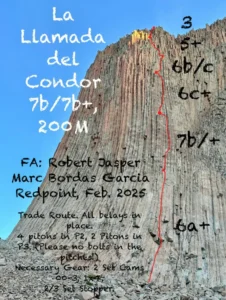 La
Llamada
del
Condor
7b/7b+,
200M
3
5+
6b/c
6c+
7b/+
6a+
FA: Robert Jasper
Marc Bordas Garcia
Redpoint, Feb. 2025
Trade Route. All belays in
place.
4 pitons in P2, 2 Pitons in
P3. (Please no bolts in the
pitches!)
Necessary Gear: 2 Set Cams
00-3,
2/3 Set Stopper.